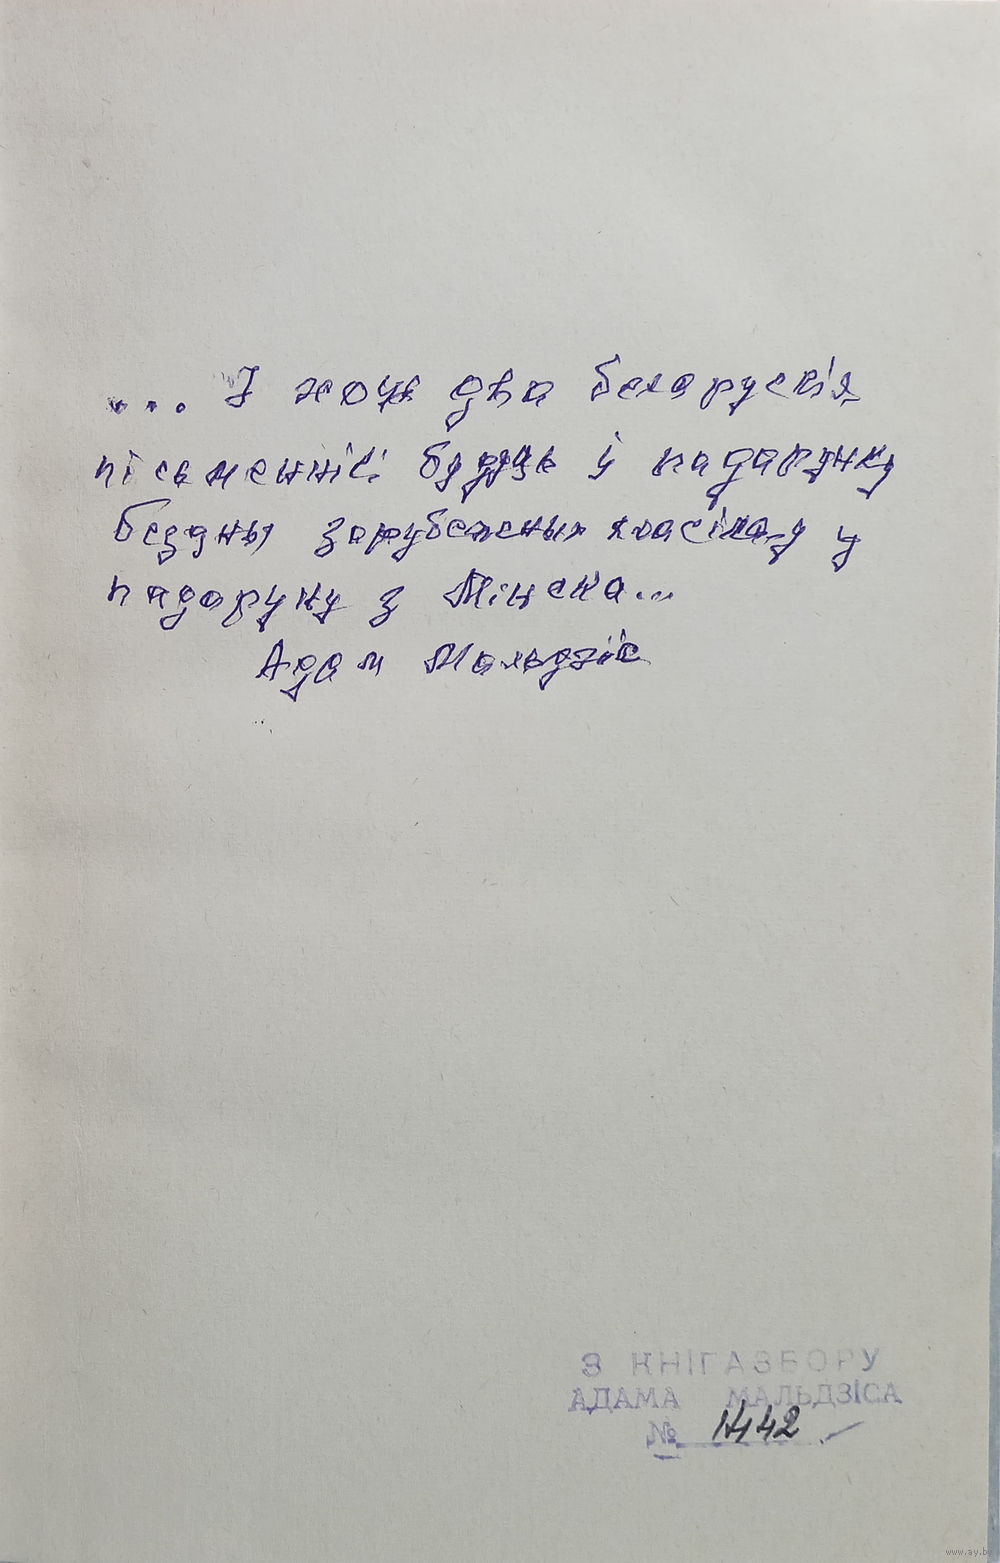 ... І хоць два беларускія
пісьменнікі будуць у падарунку
бездны зарубежных класікаў у
падарунку з Мінска...
Адам Мальдзіс
З КНІГАЗБОРУ
АДАМА МАЛЬДЗІСА
№ 1442
www.ay.by